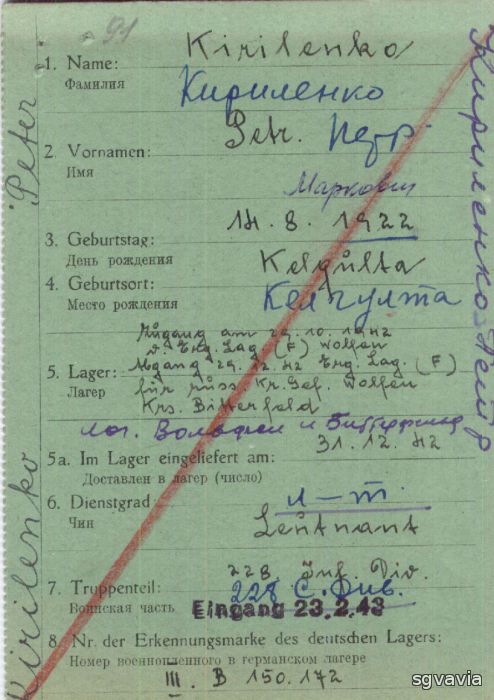 91
Kirilenko
1. Name:
Фамилия
Кириленко
Petr. Петр.
2. Vornamen:
Имя
Маркович
14. 8. 1922
3. Geburtstag:
День рождения
Kelgulta
4. Geburtsort:
Место рождения
Келгулта
Zugang am 29.10.1942
v. Erg. Lag. (F) Wolfen
5. Lager: Abgang 29.12.42 Erg. Lag. (F)
Лагер
für russ. Kr. Gef. Wolfen
Krs. Bitterfeld
лаг. Вольфен и Биттерфельд
31.12.42
5a. Im Lager eingeliefert am:
Доставлен в лагер (число)
6. Dienstgrad
л-т
Чин
Leutnant
228 Inf. Div.
7. Truppenteil:
228 С. Див.
Воинская часть
Eingang 23.2.43
8. Nr. der Erkennungsmarke des deutschen Lagers:
Номер военнопленного в германском лагере
III. B 150.172
Kirilenko Peter
Кириленко Петр
sgvavia